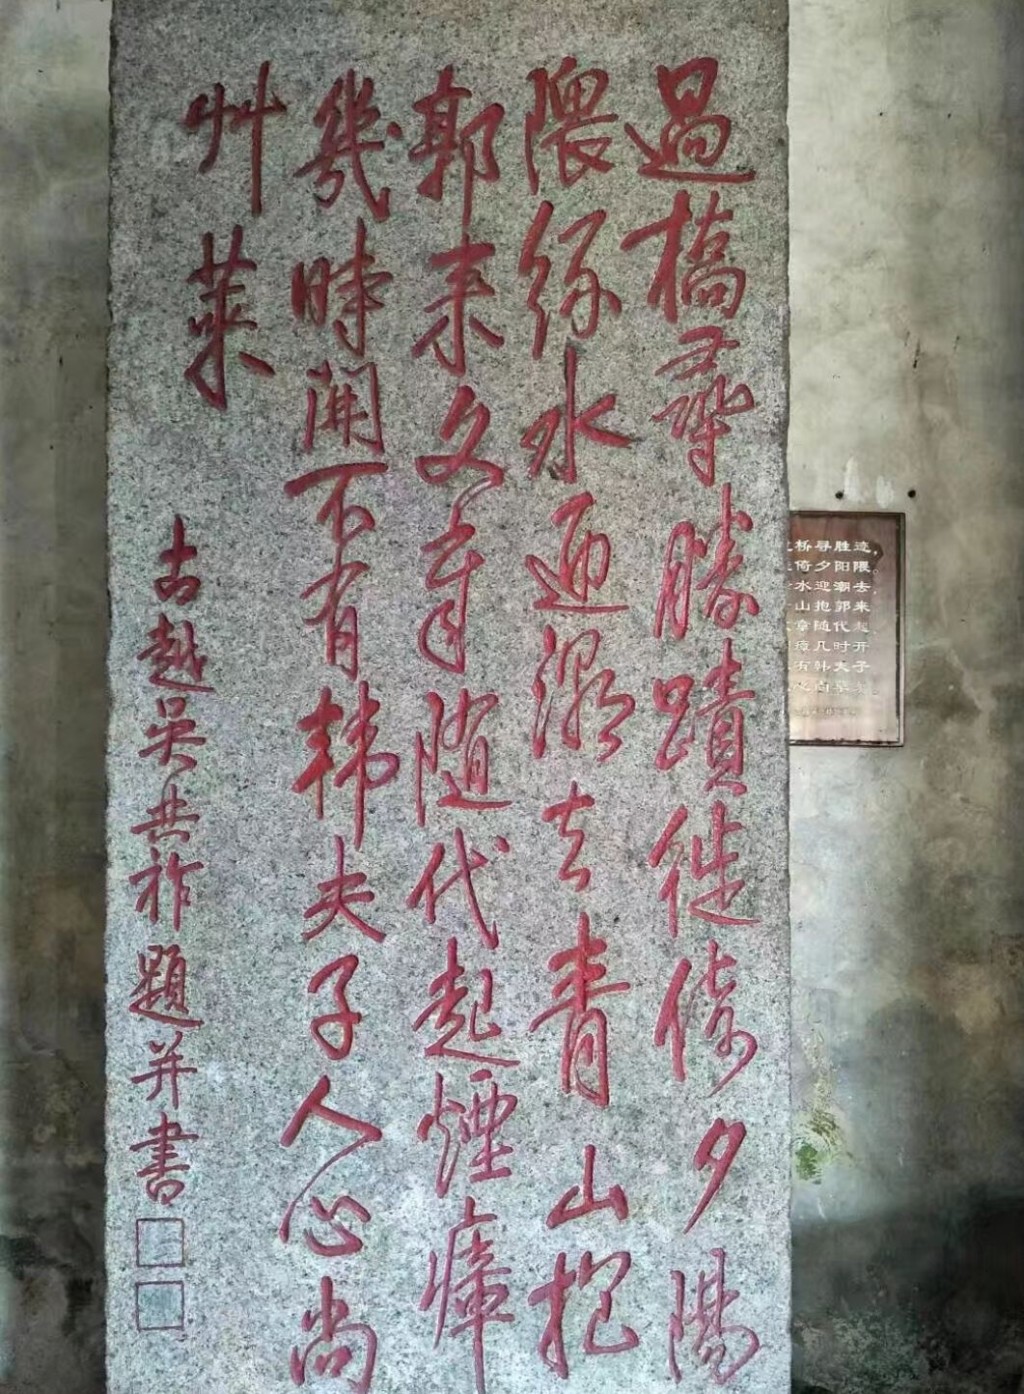 過橋尋勝蹟徙倚夕陽
隈綠水迎潮去青山抱
郭来文章随代起煙瘴
幾時開不有韩夫子人心尚
艸萊
古越吴共祚題并書
桥寻胜迹,
倚夕阳隈。
水迎潮去,
山抱郭来
章随代起
瘴几时开
有韩夫子